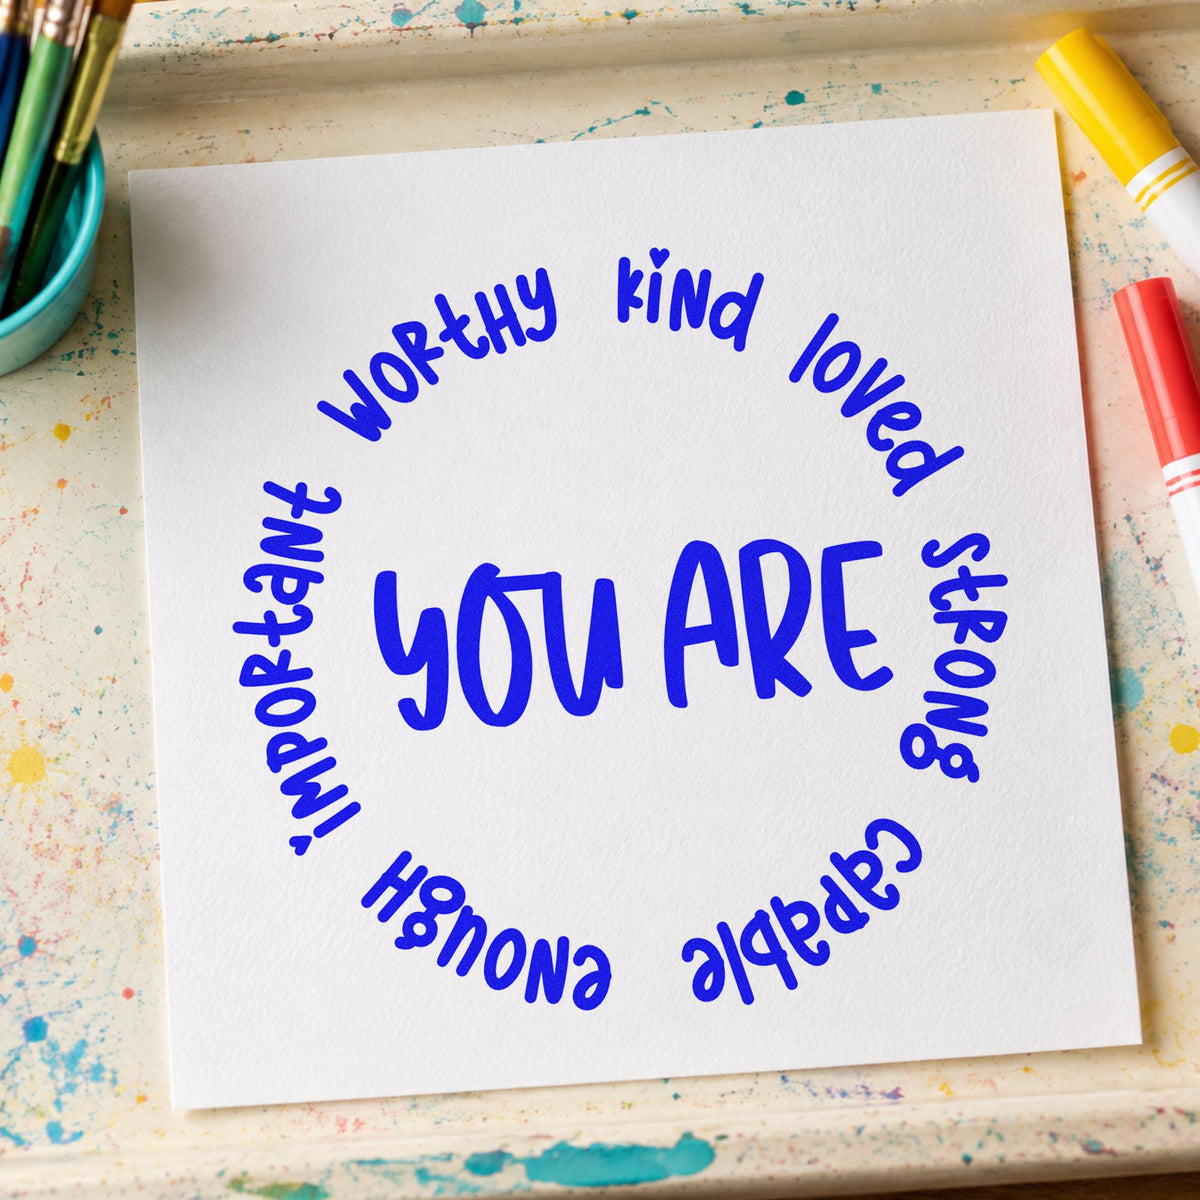 YOU ARE
kind
loved
strong
capable
enough
important
worthy